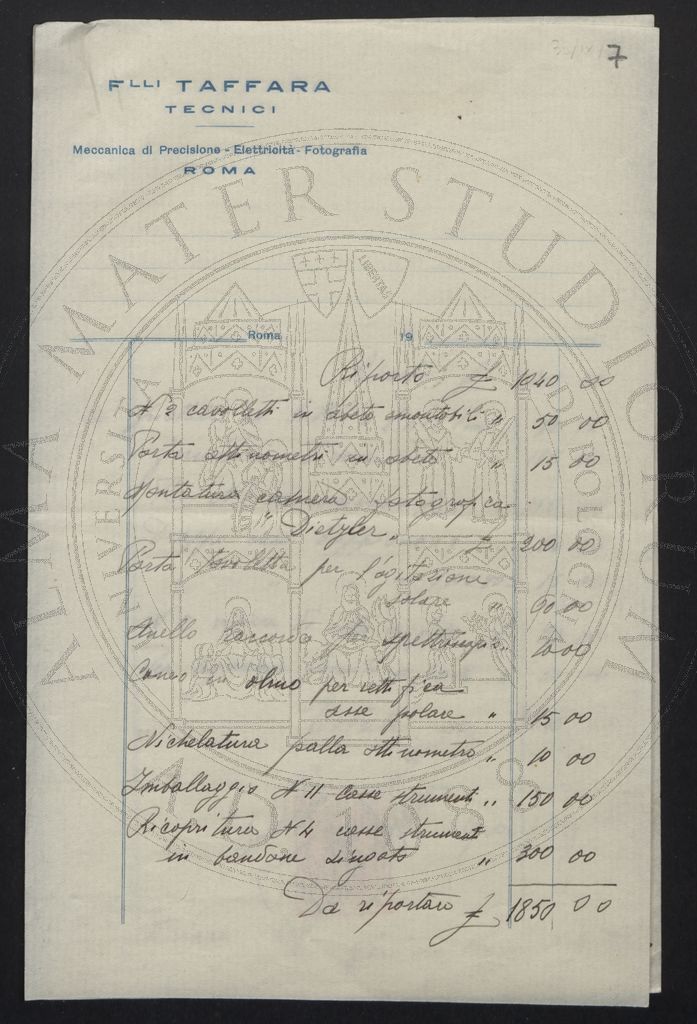 7
Flli TAFFARA
TECNICI
Meccanica di Precisione - Elettricità - Fotografia
ROMA
ALMA MATER STUDIORUM
A.D. 1088
LIBERTAS
Roma 19
Riporto £ 1040 00
N 2 cavolletti in abete smontabili " 50 00
Porta attinometri in abete " 15 00
Montatura camera fotografica
" Dietzler " £ 200 00
Porta tavoletta per l'agitazione
solare " 60 00
Anello raccordo per spettroscopio 10 00
Cuneo in olmo per rettifica
asse polare " 15 00
Nichelatura palla attinometro " 10 00
Imballaggio N 11 casse strumenti " 150 00
Ricopritura N 4 casse strumenti
in bandone zingato " 300 00
Da riportare £ 1850 00